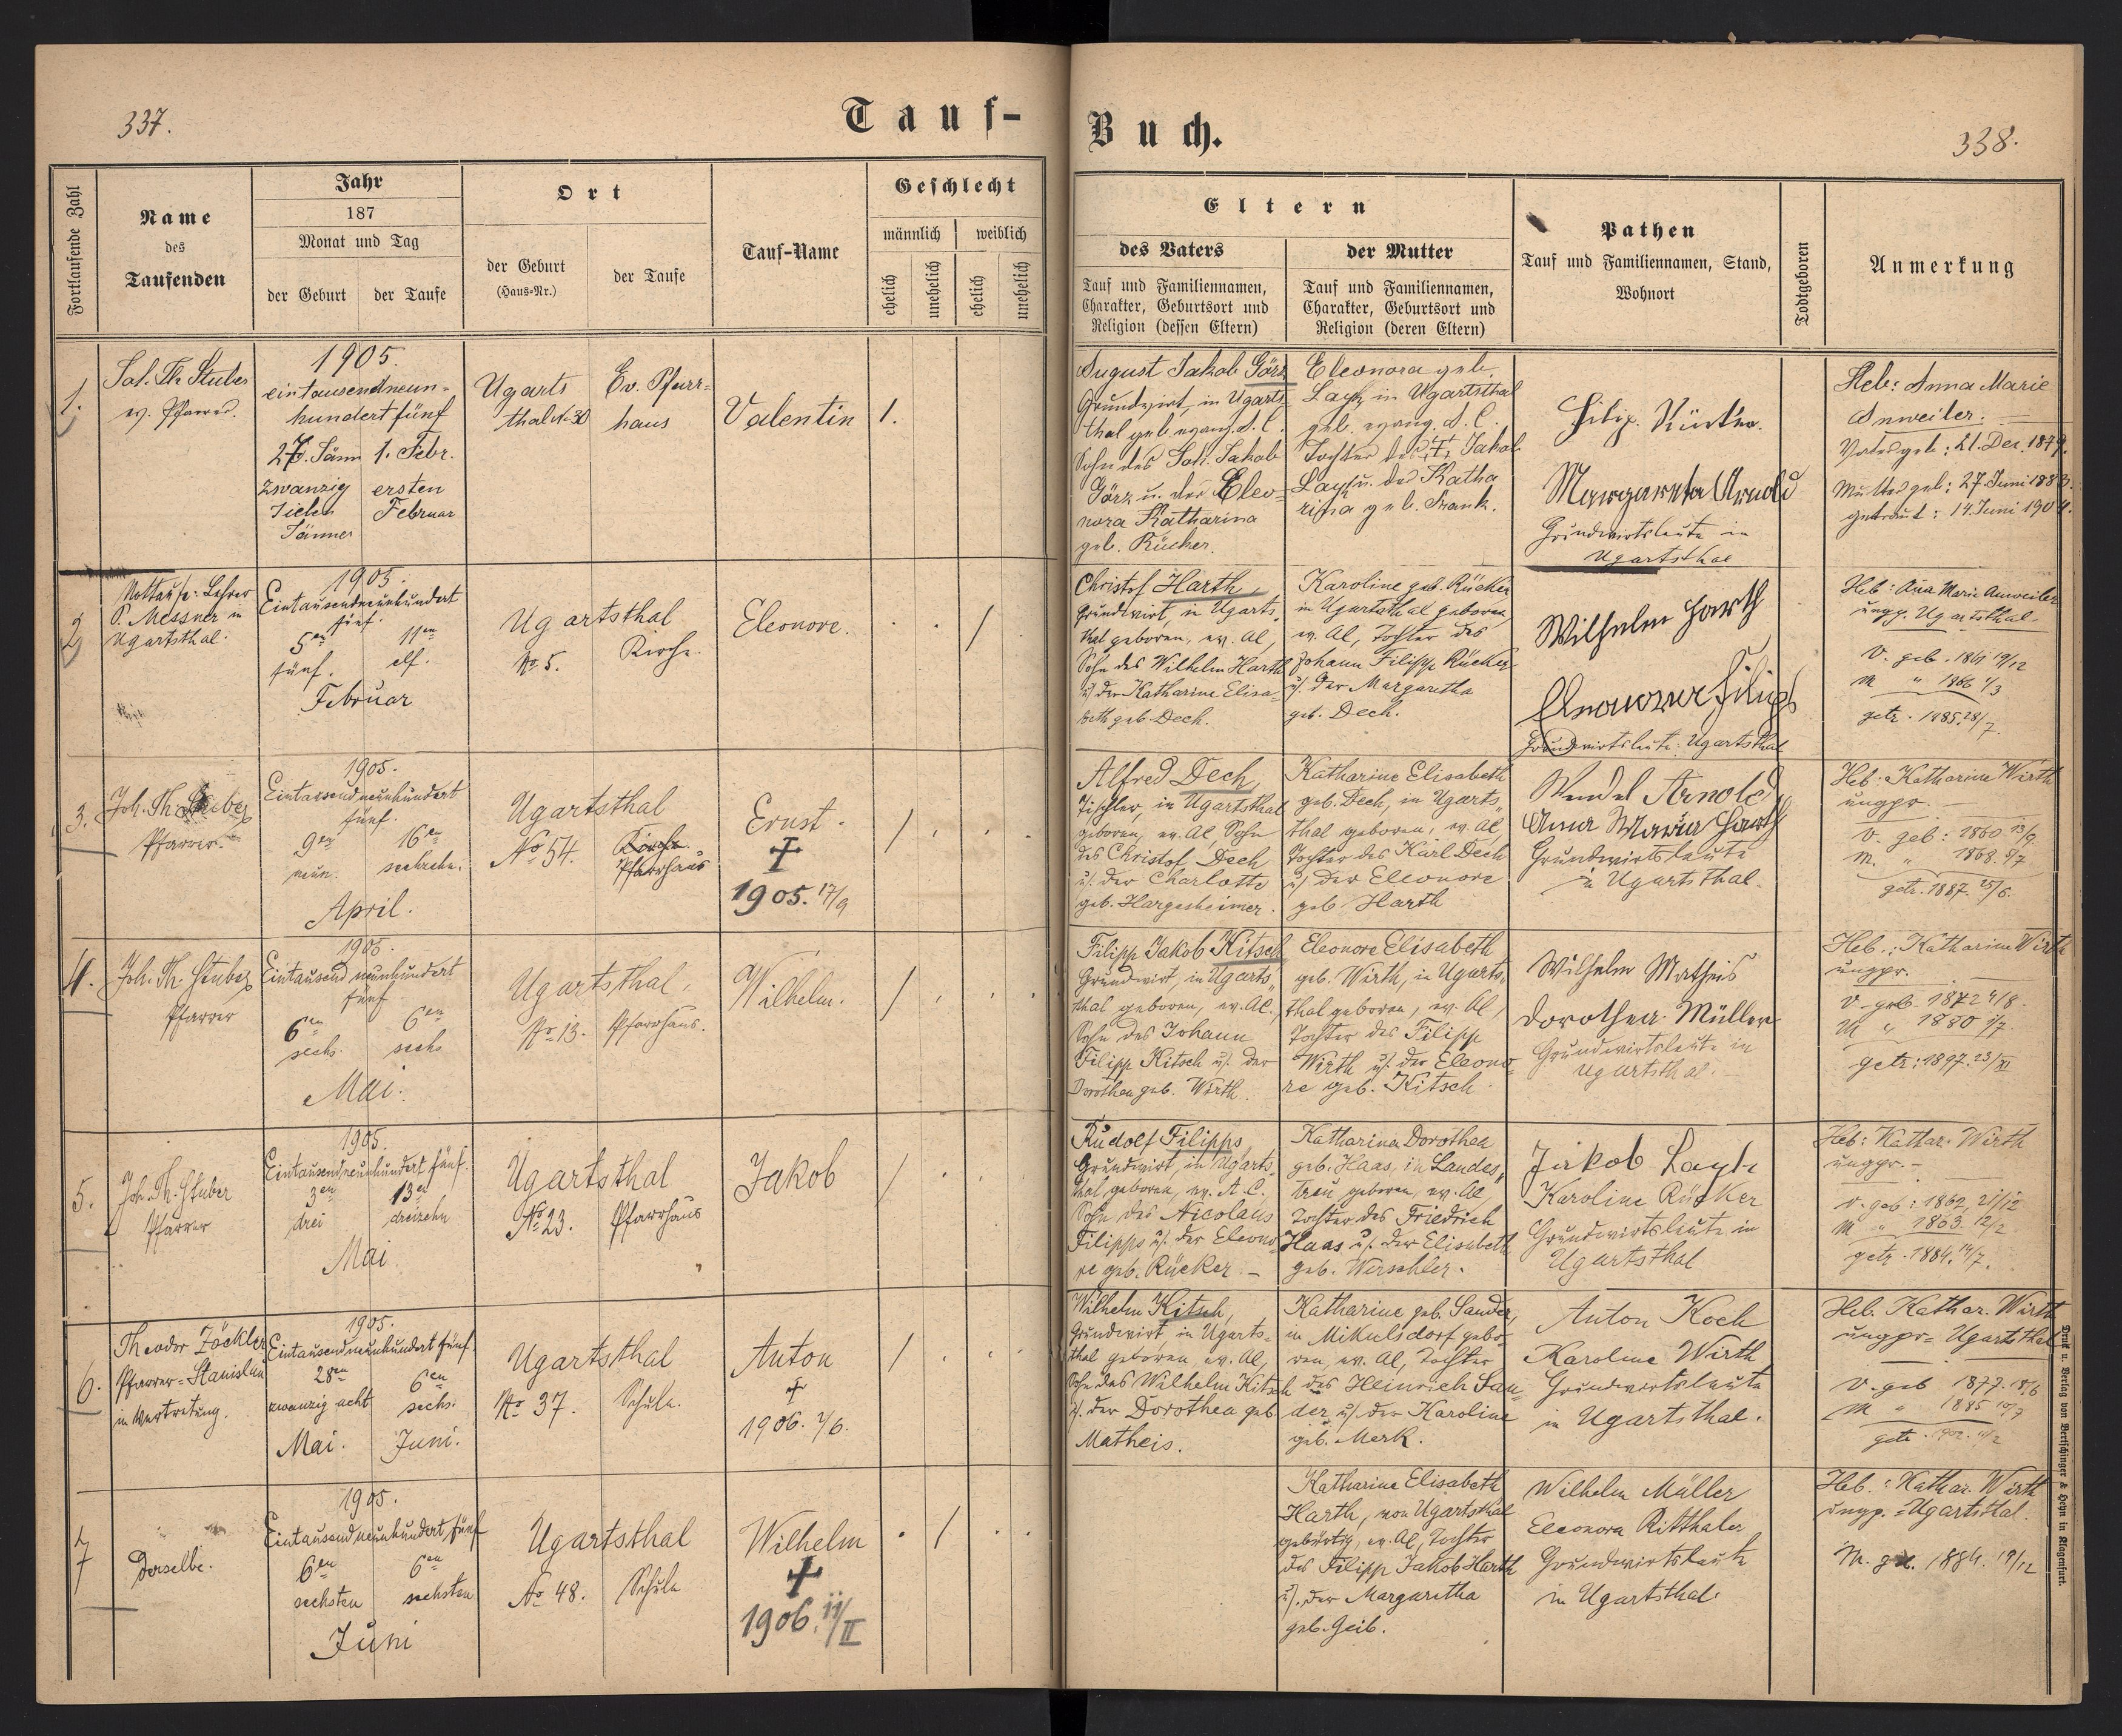 337.
Tauf-
Fortlaufende Zahl
Name
des
Taufenden
Jahr
187
Monat und Tag
der Geburt
der Taufe
Ort
der Geburt
(Haus-Nr.)
der Taufe
Tauf-Name
Geschlecht
männlich
weiblich
ehelich
unehelich
ehelich
unehelich
1.
Joh. Th. Stuber
ev. Pfarrer.
1905.
eintausendneun-
hundert fünf
27. Jänn
1. Febr.
zwanzig
ersten
sieben
Februar
Jänner
Ugarts
thal N. 30
Ev. Pfarr-
haus
Valentin
1.
2
Nottaufe: Lehrer
P. Messner in
Ugartsthal.
1905.
Eintausendneunhundert
fünf.
5en
11en
fünf.
elf.
Februar
Ugartsthal
No. 5.
Kirche.
Eleonore.
/
3.
Joh. Th. Stuber
Pfarrer.
1905.
Eintausendneunhundert
fünf.
9en
16en
neun.
sechzehn.
April.
Ugartsthal
No 54.
Kirche.
Pfarrhaus
Ernst.
†
1905. 17/9
/
4.
Joh. Th. Stuber
Pfarrer
1905.
Eintausend neunhundert
fünf
6en
6en
sechs.
sechs
Mai.
Ugartsthal.
No. 13.
Pfarrhaus.
Wilhelm.
/
5.
Joh. Th. Stuber
Pfarrer
1905.
Eintausendneunhundert fünf.
3en
13en
drei
dreizehn
Mai
Ugartsthal
No. 23.
Pfarrhaus
Jakob
/
6.
Theodor Zöckler
Pfarrer = Stanislau
in Vertretung.
1905.
Eintausendneunhundert fünf.
28en
6en
zwanzig acht
sechs.
Mai.
Juni.
Ugartsthal
No 37.
Schule.
Anton
†
1906. /6.
/
7
Derselbe.
1905.
Eintausend neunhundert fünf
6en
6en
sechsten
sechsten
Juni
Ugartsthal
No 48.
Schule
Wilhelm
†
1906. 11/II
/
Buch.
338.
Eltern
des Vaters
Tauf und Familiennamen,
Charakter, Geburtsort und
Religion (dessen Eltern)
der Mutter
Tauf und Familiennamen,
Charakter, Geburtsort und
Religion (deren Eltern)
Pathen
Tauf und Familiennamen, Stand,
Wohnort
Todtgeboren
Anmerkung
August Jakob Görz
Grundwirt, in Ugarts-
thal geb. evang. A. C.
Sohn des Joh. Jakob
Görz u. der Eleo-
nora Katharina
geb. Rücker.
Eleonora geb.
Layh in Ugartsthal
geb. evang. A. C.
Tochter des † Jakob
Layh u. der Katha
rina geb. Frank.
Margareta Arnold
Grundwirtsleute in
Ugartsthal
Heb: Anna Marie
Anweiler.
Vater geb: 21. Dez. 1879.
Mutter geb: 27. Juni 1883.
getraut: 14. Juni 1904.
Christof Harth,
Grundwirt, in Ugarts-
thal geboren, ev. AC,
Sohn des Wilhelm Harth
u. der Katharine Elisa-
beth geb. Dech.
Karoline geb. Rücker
in Ugartsthal geboren
ev. AC, Tochter des
Johann Filipp Rücker
u. der Margaretha
geb. Dech.
Wilhelm Harth
Eleonore Filips
Grundwirtsleute: Ugartsthal
Heb: Ana Marie Anweiler
ungp. Ugartsthal.
V. geb. 1861 19/12
M " 1866 1/3
getr. 1885. 28/7.
Alfred Dech,
Tischler, in Ugartsthal
geboren, ev. AC, Sohn
des Christof Dech
u. der Charlotte
geb. Hargesheimer.
Katharine Elisabeth
geb. Dech, in Ugarts-
thal geboren, ev. AC,
Tochter des Karl Dech
u. der Eleonore
geb. Harth
Wendel Arnold
Anna Maria Harth
Grundwirtsleute
in Ugartsthal.
Heb: Katharine Wirth
ungpr.
V. geb: 1860 13/9.
M. " 1868. 8/7
getr. 1887. 25/6.
Filipp Jakob Kitsch
Grundwirt, in Ugarts-
thal geboren, ev. AC.,
Sohn des Johann
Filipp Kitsch u. der
Dorothea geb. Wirth.
Eleonore Elisabeth
geb. Wirth, in Ugarts-
thal geboren, ev. AC,
Tochter des Filipp
Wirth u. der Eleono-
re geb. Kitsch.
Wilhelm Matheis
Dorothea Müller
Grundwirtsleute in
Ugartsthal.
Heb.: Katharine Wirth
ungpr.
V. geb. 1872 4/8.
M " 1880 1/7
getr: 1897. 23/XI
Rudolf Filipps,
Grundwirt, in Ugarts-
thal geboren, ev. A C.
Sohn des Nicolaus
Filipps u. der Eleono-
re geb. Rücker. –
Katharina Dorothea
geb. Haas, in Landes-
treu geboren, ev. AC,
Tochter des Friedrich
Haas u. der Elisabeth
geb. Werschler.
Jakob Layh
Karoline Rücker
Grundwirtsleute in
Ugartsthal
Heb: Kathar. Wirth
ungpr. –
V. geb: 1862, 21/12
M " 1863. 12/2
getr. 1884. 14/7.
Wilhelm Kitsch,
Grundwirt, in Ugarts-
thal geboren, ev. AC,
Sohn des Wilhelm Kitsch
u. der Dorothea geb.
Matheis.
Katharine geb. Sander,
in Mikulsdorf gebo-
ren, ev. AC, Tochter
des Heinrich San-
der u. der Karoline
geb. Merk.
Anton Koch
Karolina Wirth
Grundwirtsleute
in Ugartsthal.
Heb. Kathar. Wirth
ungpr = Ugartsthal
V. geb 1877. 18/6
M " 1885 10/7
getr. 1902.
Katharine Elisabeth
Harth, von Ugartsthal
gebürtig, ev. AC, Tochter
des Filipp Jakob Harth
u. der Margaretha
geb. Geib.
Wilhelm Müller
Eleonora Ritthaler
Grundwirtsleute
in Ugartsthal.
Heb.: Kathar. Wirth
ungp. = Ugartsthal.
M. geb. 1884. 19/12
Druck u. Verlag von Bertschinger & Heyn in Klagenfurt.